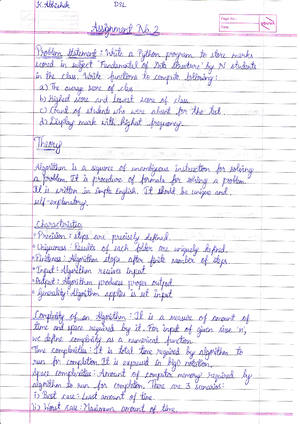 K. Abhishek DSL
Page No.:
Date:
Assignment No. 2
Problem Statement : Write a Python program to store marks
scored in subject "Fundamental of Data Structure" by N students
in the class. Write functions to compute following :
a) The average score of class
b) Highest score and lowest score of class
c) Count of students who were absent for the test
d) Display mark with highest frequency.
Theory
Algorithm is a sequence of unambiguous instruction for solving
a problem. It is procedure of formula for solving a problem.
It is written in simple English. It should be unique and
self-explanatory.
Characteristics
• Precision : steps are precisely defined.
• Uniqueness : Results of each are uniquely defined.
• Finiteness : Algorithm stops after finite number of steps
• Input : Algorithm receives input
• Output : Algorithm produces proper output
• Generality : Algorithm applies is set input
Complexity of an Algorithm : It is a measure of amount of
time and space required by it. For input of given size 'n',
we define complexity as a numerical function.
Time complexities : It is total time required by algorithm to
run for completion. It is expressed in bigO notation.
Space complexities : Amount of computer memory required by
algorithm to run for completion. There are 3 scenarios :
i) Best case : Least amount of time
ii) Worst case : Maximum amount of time.